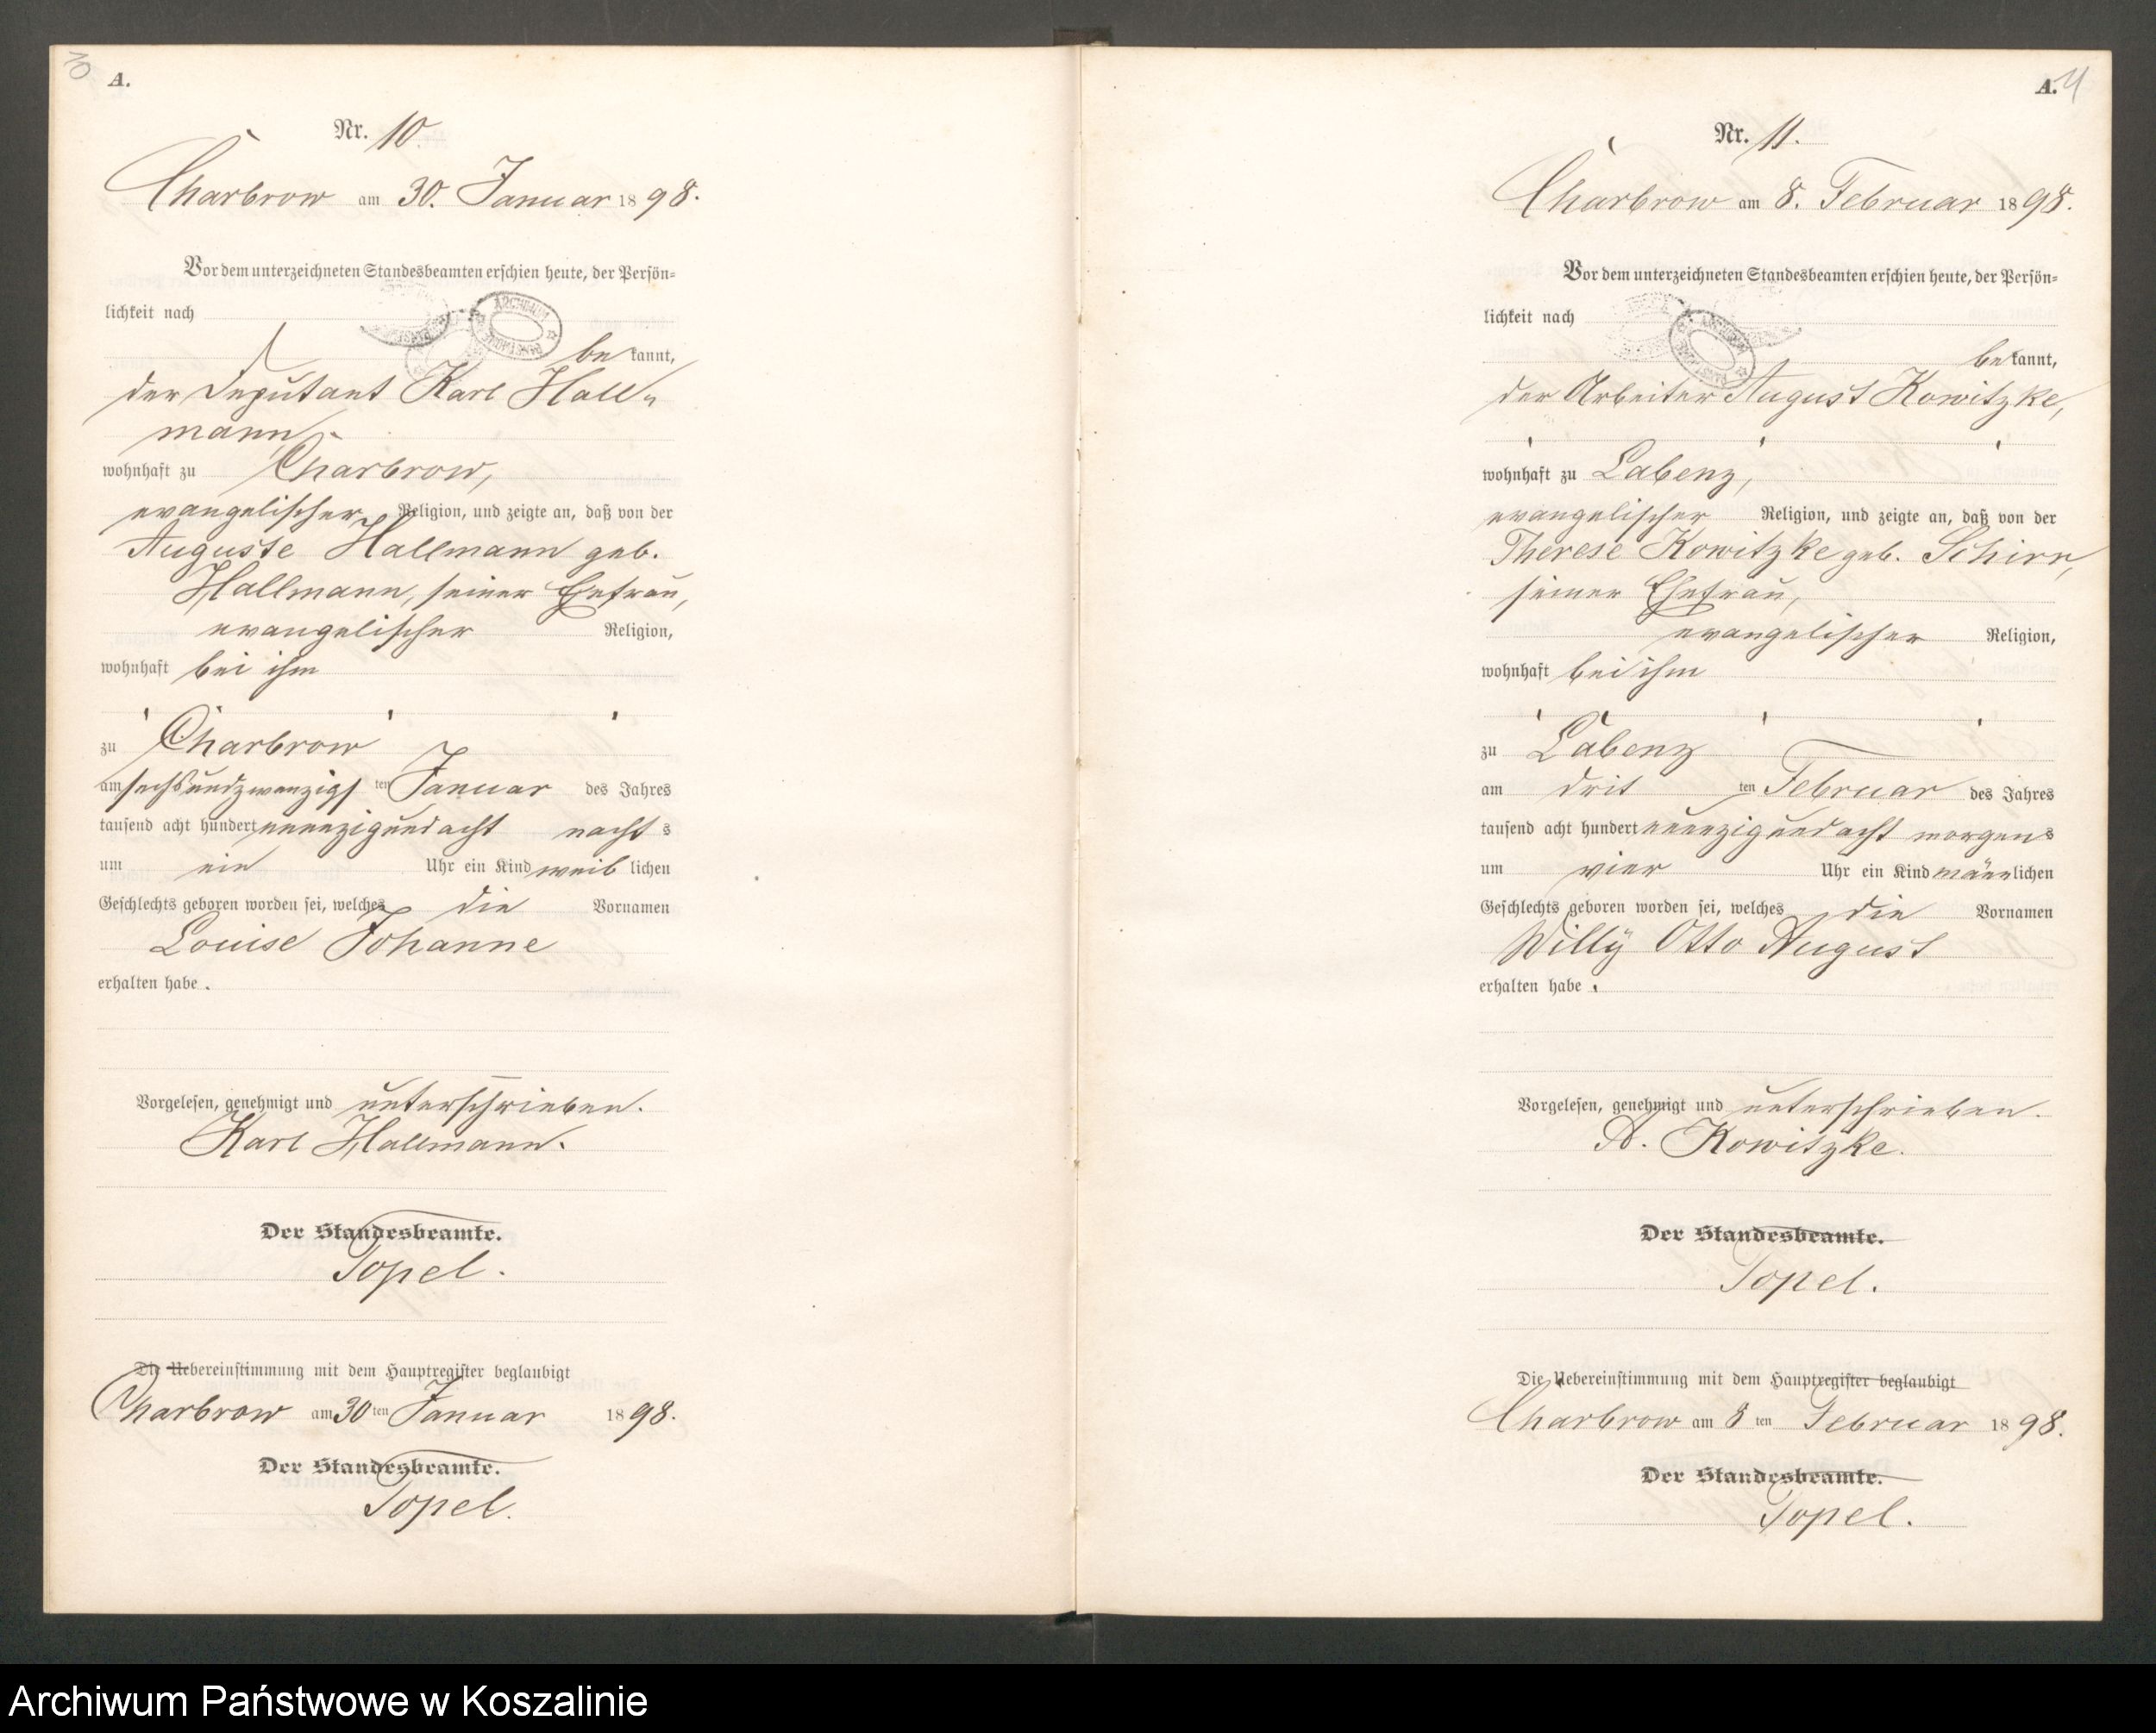 10
A.
Nr. 10.
Charbrow am 30. Januar 1898.
Vor dem unterzeichneten Standesbeamten erschien heute, der Persön=
lichkeit nach
bekannt,
der Deputant Karl Hall=
mann,
wohnhaft zu Charbrow,
evangelischer Religion, und zeigte an, daß von der
Auguste Hallmann geb.
Hallmann, seiner Ehefrau,
evangelischer Religion,
wohnhaft bei ihm
zu Charbrow
am sechsundzwanzigsten Januar des Jahres
tausend acht hundert neunzigundacht nachts
um ein Uhr ein Kind weiblichen
Geschlechts geboren worden sei, welches die Vornamen
Louise Johanne
erhalten habe.
Vorgelesen, genehmigt und unterschrieben.
Karl Hallmann.
Der Standesbeamte.
Topel.
Die Uebereinstimmung mit dem Hauptregister beglaubigt
Charbrow am 30ten Januar 1898.
Der Standesbeamte.
Topel.
A. 11
Nr. 11.
Charbrow am 8. Februar 1898.
Vor dem unterzeichneten Standesbeamten erschien heute, der Persön=
lichkeit nach
bekannt,
der Arbeiter August Kowitzke,
wohnhaft zu Labenz,
evangelischer Religion, und zeigte an, daß von der
Therese Kowitzke geb. Schirr,
seiner Ehefrau,
evangelischer Religion,
wohnhaft bei ihm
zu Labenz
am dritten Februar des Jahres
tausend acht hundert neunzigundacht morgens
um vier Uhr ein Kind männlichen
Geschlechts geboren worden sei, welches die Vornamen
Willy Otto August
erhalten habe.
Vorgelesen, genehmigt und unterschrieben.
A. Kowitzke.
Der Standesbeamte.
Topel.
Die Uebereinstimmung mit dem Hauptregister beglaubigt
Charbrow am 8ten Februar 1898.
Der Standesbeamte.
Topel.
Archiwum Państwowe w Koszalinie